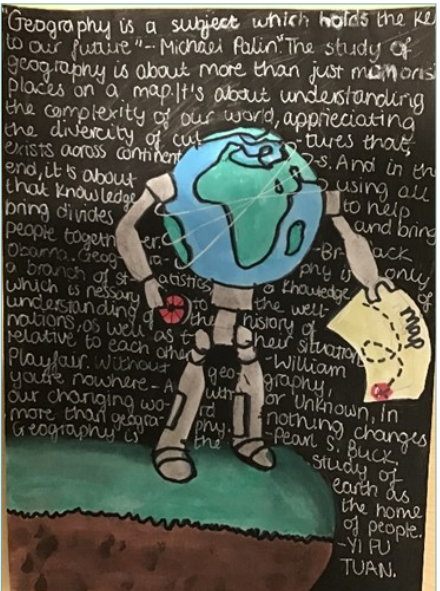 "Geography is a subject which holds the ke
to our future"-- Michael Palin "The study of
geography is about more than just memoris
places on a map. It's about understanding
the complexity of our world, appreciating
the divercity of cul -tures that
exists across continent -s. And in the
end, it's about using all
that knowledge to help
bring divides and bring
people togeth er -Br ack
Obama. Geog- phy is only
a branch of st- atistics a knowledge
which is nessary to the well-
understanding of the history of
nations, as well as t- heir situation
relative to each othe -William
Playfair. Without geo- graphy,
you're nowhere - A uth or Unknown, In
our changing wo- rd nothing changes
more than geogra- phy. -Pearl S. Buck,
Geography is the study of
earth as
the home
of people.
-YI FU
TUAN.
Map